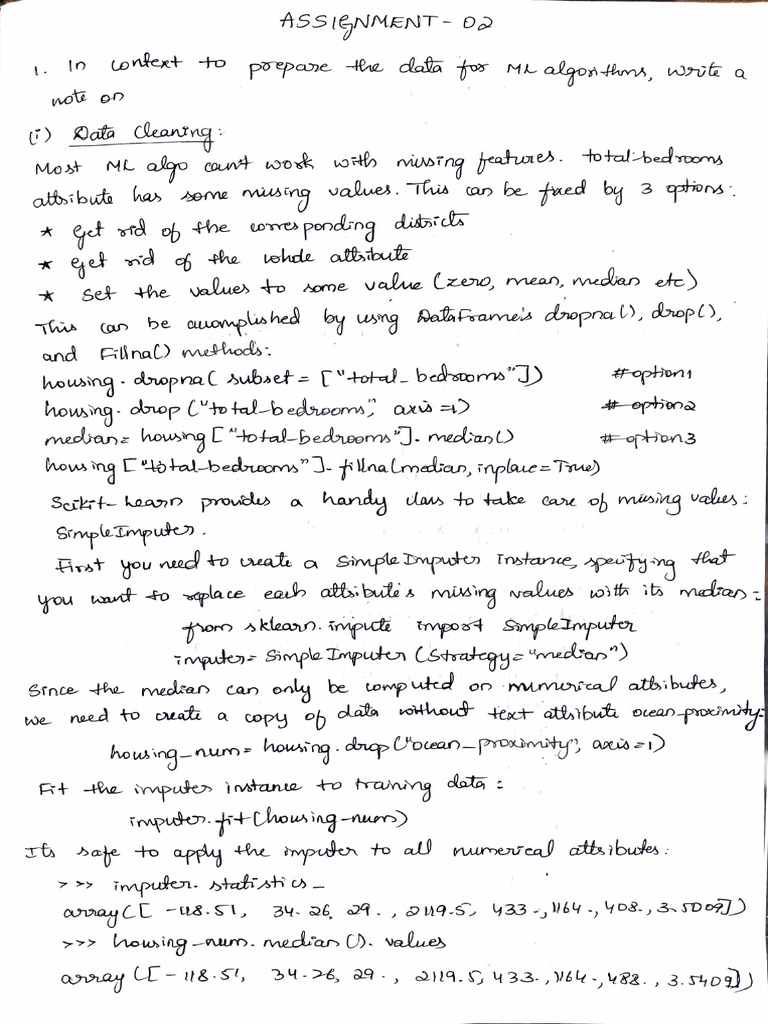 ASSIGNMENT - 02
1. In context to prepare the data for ML algorithms, write a
note on
(i) Data Cleaning:
Most ML algo can't work with missing features. total-bedrooms
attribute has some missing values. This can be fixed by 3 options:
* Get rid of the corresponding districts
* Get rid of the whole attribute
* Set the values to some value (zero, mean, median etc)
This can be accomplished by using DataFrame's dropna(), drop(),
and Fillna() methods:
housing.dropna( subset = ["total_bedrooms"]) #option1
housing.drop ("total-bedrooms", axis=1) #option2
median = housing ["total-bedrooms"].median() #option3
housing ["total-bedrooms"].fillna(median, inplace=True)
Scikit-Learn provides a handy class to take care of missing values:
SimpleImputer.
First you need to create a SimpleImputer instance, specifying that
you want to replace each attribute's missing values with its median:
from sklearn.impute import SimpleImputer
imputer = SimpleImputer (Strategy="median")
Since the median can only be computed on numerical attributes,
we need to create a copy of data without text attribute ocean_proximity:
housing_num = housing.drop("ocean_proximity", axis=1)
Fit the imputer instance to training data:
imputer.fit(housing-num)
Its safe to apply the imputer to all numerical attributes:
>>> imputer.statistics_
array([ -118.51, 34.26, 29., 2119.5, 433., 1164., 408., 3.5009])
>>> housing-num.median().values
array([ -118.51, 34.26, 29., 2119.5, 433., 1164., 488., 3.5409])